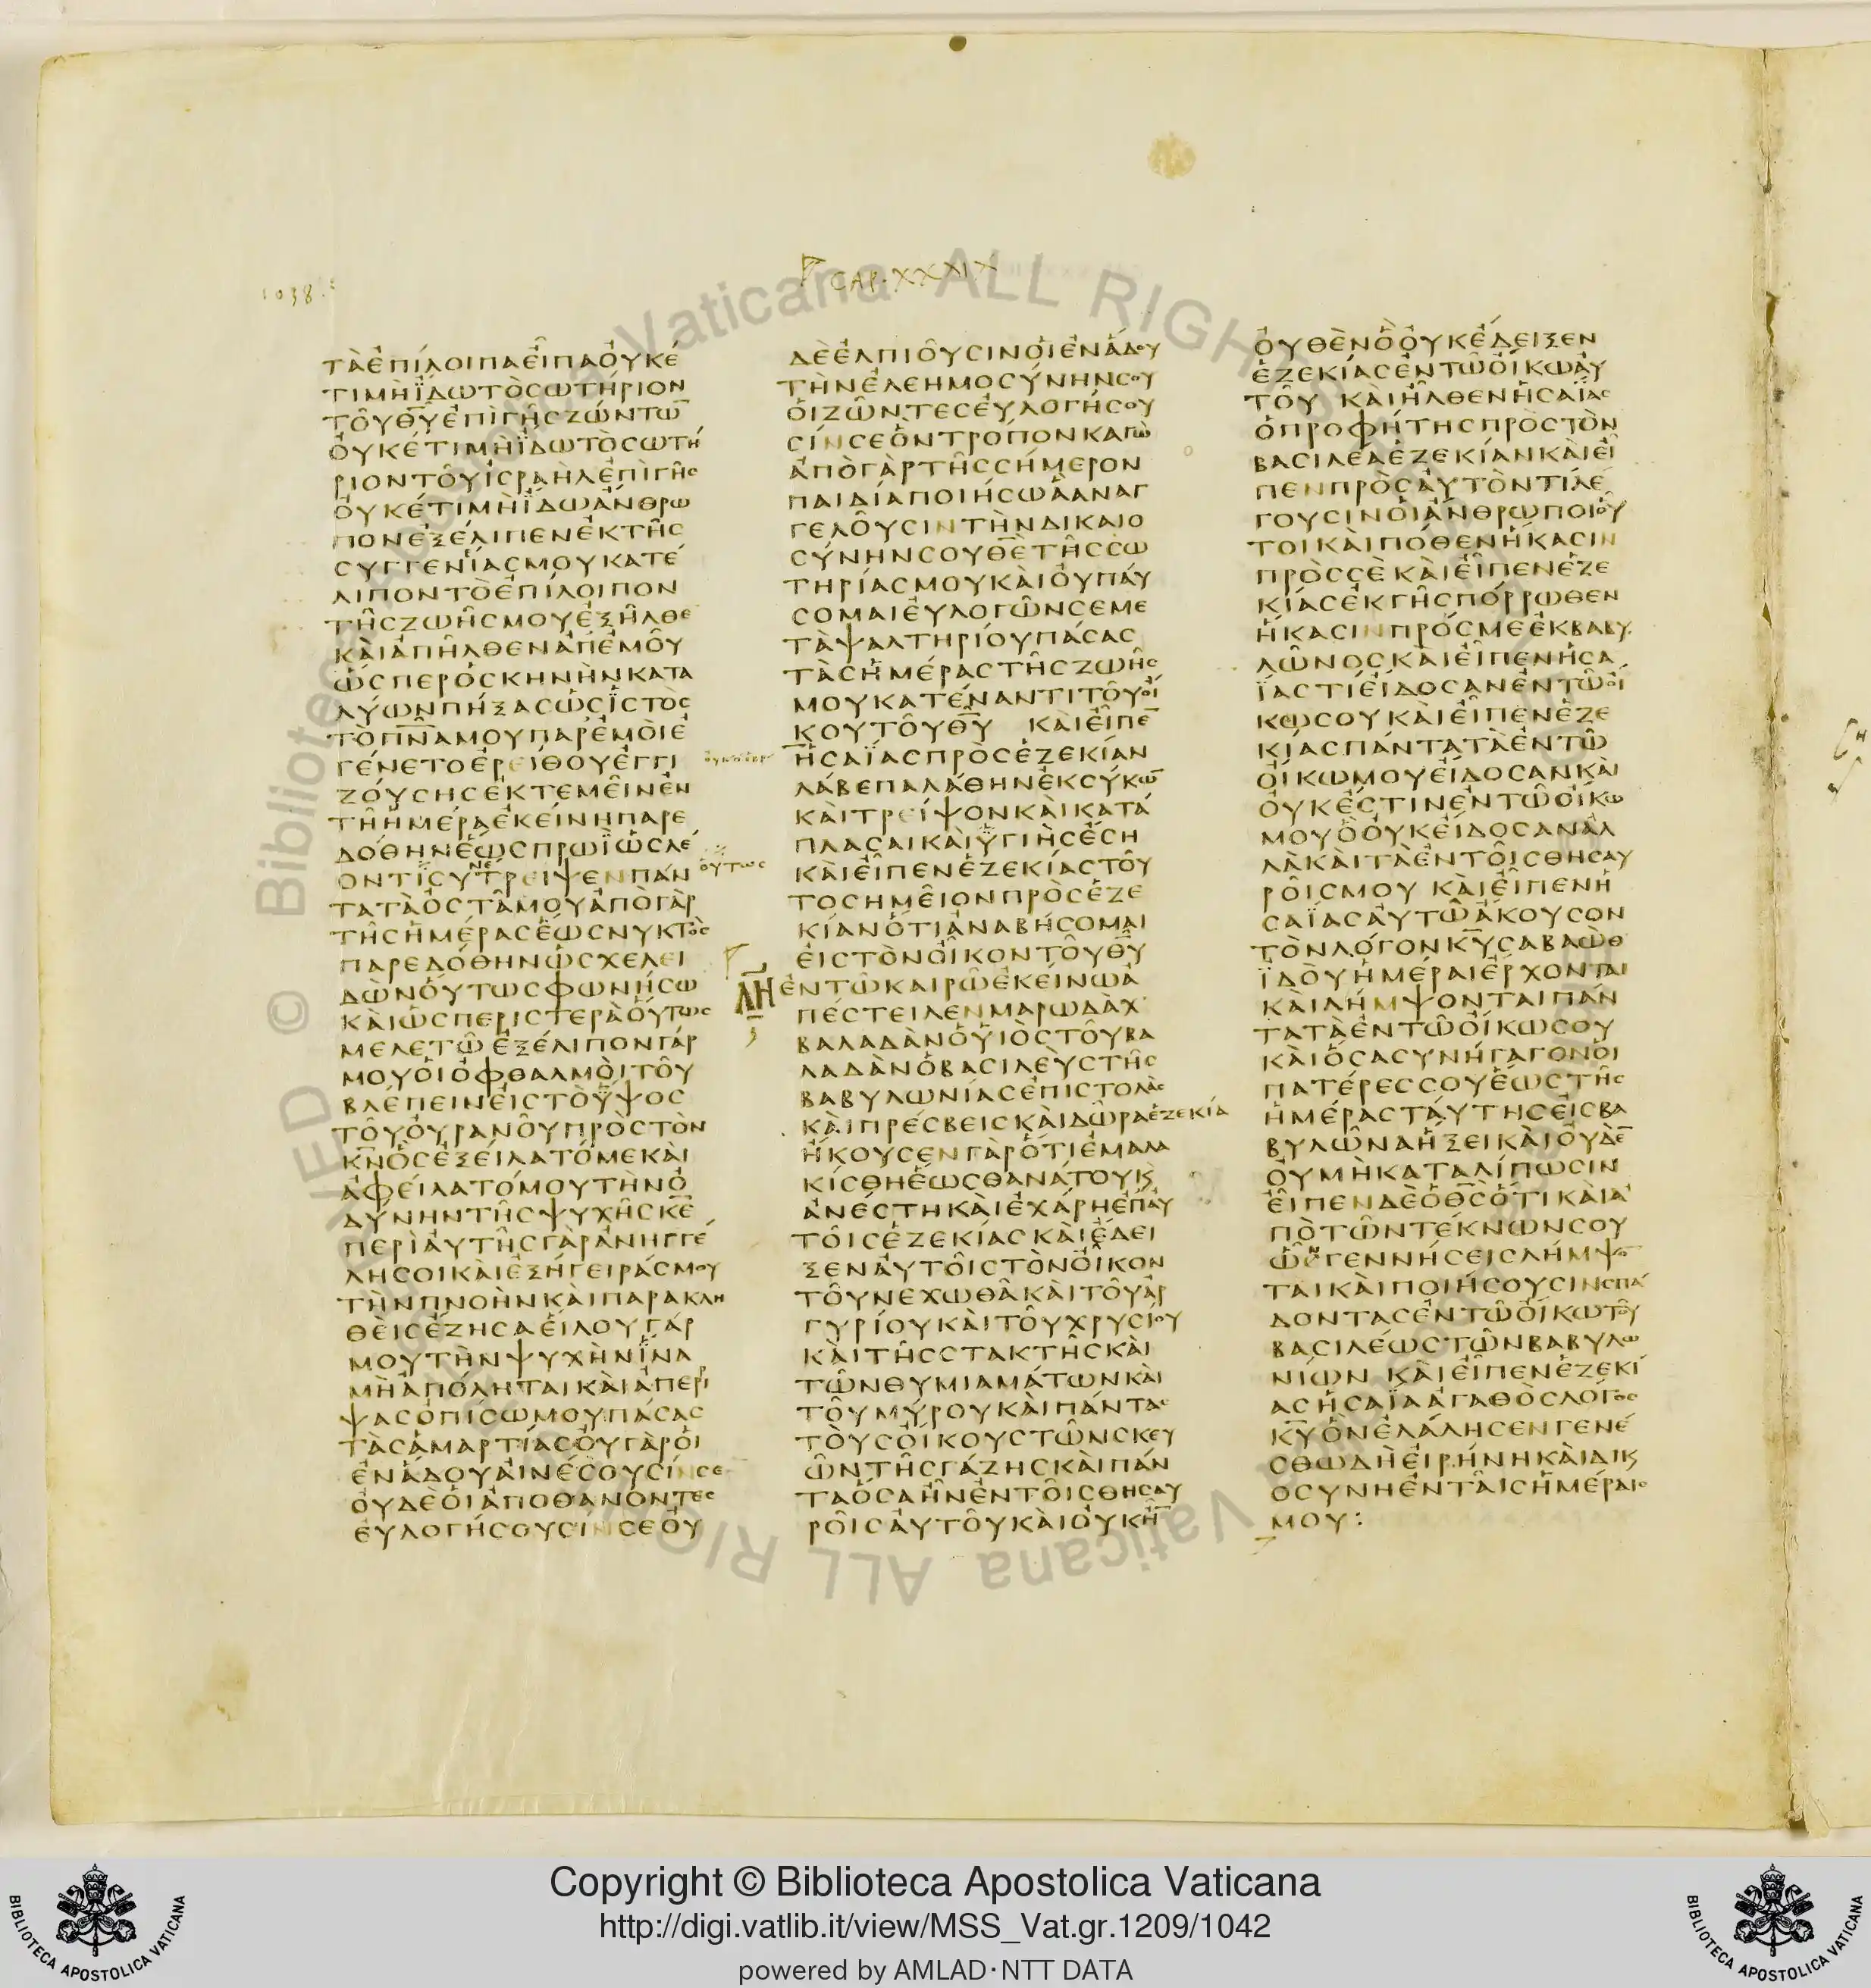 1038
CAP. XXXIX
ΤΑΕΠΙΛΟΙΠΑΕΙΠΑΟΥΚΕ
ΤΙΜΗΪΔΩΤΟΣΩΤΗΡΙΟΝ
ΤΟΥΘΥΕΠΙΓΗΣΖΩΝΤΩ̅
ΟΥΚΕΤΙΜΗΪΔΩΤΟΣΩΤΗ
ΡΙΟΝΤΟΥΙΣΡΑΗΛΕΠΙΓΗΣ
ΟΥΚΕΤΙΜΗΪΔΩΑΝΘΡΩ
ΠΟΝΕΞΕΛΙΠΕΝΕΚΤΗΣ
ΣΥΓΓΕΝΙΑΣΜΟΥΚΑΤΕ
ΛΙΠΟΝΤΟΕΠΙΛΟΙΠΟΝ
ΤΗΣΖΩΗΣΜΟΥΕΞΗΛΘΕ
ΚΑΙΑΠΗΛΘΕΝΑΠΕΜΟΥ
ΩΣΠΕΡΟΣΚΗΝΗΝΚΑΤΑ
ΛΥΩΝΠΗΞΑΣΩΣΪΣΤΟΣ
ΤΟΠΝ̅ΑΜΟΥΠΑΡΕΜΟΙΕ
ΓΕΝΕΤΟΕΡΕΙΘΟΥΕΓΓΙ
ΖΟΥΣΗΣΕΚΤΕΜΕΙΝΕΝ
ΤΗΗΜΕΡΑΕΚΕΙΝΗΠΑΡΕ
ΔΟΘΗΝΕΩΣΠΡΩΪΩΣΛΕ
ΟΝΤΙΣΥΝΕΤΡΕΙΨΕΝΠΑΝ
ΟΥΤΩΣ
ΤΑΤΑΟΣΤΑΜΟΥΑΠΟΓΑΡ
ΤΗΣΗΜΕΡΑΣΕΩΣΝΥΚΤΟΣ
ΠΑΡΕΔΟΘΗΝΩΣΧΕΛΕΙ
ΔΩΝΟΥΤΩΣΦΩΝΗΣΩ
ΚΑΙΩΣΠΕΡΙΣΤΕΡΑΟΥΤΩΣ
ΜΕΛΕΤΩΕΞΕΛΙΠΟΝΓΑΡ
ΜΟΥΟΙΟΦΘΑΛΜΟΙΤΟΥ
ΒΛΕΠΕΙΝΕΙΣΤΟΫΨΟΣ
ΤΟΥΟΥΡΑΝΟΥΠΡΟΣΤΟΝ
Κ̅Ν̅ΟΣΕΞΕΙΛΑΤΟΜΕΚΑΙ
ΑΦΕΙΛΑΤΟΜΟΥΤΗΝΟ
ΔΥΝΗΝΤΗΣΨΥΧΗΣΚ̅Ε̅
ΠΕΡΙΑΥΤΗΣΓΑΡΑΝΗΓΓΕ
ΛΗΣΟΙΚΑΙΕΞΗΓΕΙΡΑΣΜΟΥ
ΤΗΝΠΝΟΗΝΚΑΙΠΑΡΑΚΛΗ
ΘΕΙΣΕΖΗΣΑΕΙΛΟΥΓΑΡ
ΜΟΥΤΗΝΨΥΧΗΝΪΝΑ
ΜΗΑΠΟΛΗΤΑΙΚΑΙΑΠΕΡΙ
ΨΑΣΟΠΙΣΩΜΟΥΠΑΣΑΣ
ΤΑΣΑΜΑΡΤΙΑΣΟΥΓΑΡΟΙ
ΕΝΑΔΟΥΑΙΝΕΣΟΥΣΙΝΣΕ
ΟΥΔΕΟΙΑΠΟΘΑΝΟΝΤΕΣ
ΕΥΛΟΓΗΣΟΥΣΙΝΣΕΟΥ
ΔΕΕΛΠΙΟΥΣΙΝΟΙΕΝΑΔΟΥ
ΤΗΝΕΛΕΗΜΟΣΥΝΗΝΣΟΥ
ΟΙΖΩΝΤΕΣΕΥΛΟΓΗΣΟΥ
ΣΙΝΣΕΟΝΤΡΟΠΟΝΚΑΓΩ
ΑΠΟΓΑΡΤΗΣΣΗΜΕΡΟΝ
ΠΑΙΔΙΑΠΟΙΗΣΩΑΑΝΑΓ
ΓΕΛΟΥΣΙΝΤΗΝΔΙΚΑΙΟ
ΣΥΝΗΝΣΟΥΘ̅Ε̅ΤΗΣΣΩ
ΤΗΡΙΑΣΜΟΥΚΑΙΟΥΠΑΥ
ΣΟΜΑΙΕΥΛΟΓΩΝΣΕΜΕ
ΤΑΨΑΛΤΗΡΙΟΥΠΑΣΑΣ
ΤΑΣΗΜΕΡΑΣΤΗΣΖΩΗΣ
ΜΟΥΚΑΤΕΝΑΝΤΙΤΟΥΟΙ
ΚΟΥΤΟΥΘ̅Υ̅ ΚΑΙΕΙΠΕ̅
ΗΣΑΪΑΣΠΡΟΣΕΖΕΚΙΑΝ
ΛΑΒΕΠΑΛΑΘΗΝΕΚΣΥΚΩ̅
ΚΑΙΤΡΕΙΨΟΝΚΑΙΚΑΤΑ
ΠΛΑΣΑΙΚΑΙΫΓΙΗΣΕΣΗ
ΚΑΙΕΙΠΕΝΕΖΕΚΙΑΣΤΟΥ
ΤΟΣΗΜΕΙΟΝΠΡΟΣΕΖΕ
ΚΙΑΝΟΤΙΑΝΑΒΗΣΟΜΑΙ
ΕΙΣΤΟΝΟΙΚΟΝΤΟΥΘ̅Υ̅
ΛΗ ΕΝΤΩΚΑΙΡΩΕΚΕΙΝΩΑ
ΠΕΣΤΕΙΛΕΝΜΑΡΩΔΑΧ
ΒΑΛΑΔΑΝΟΫΙΟΣΤΟΥΒΑ
ΛΑΔΑΝΟΒΑΣΙΛΕΥΣΤΗΣ
ΒΑΒΥΛΩΝΙΑΣΕΠΙΣΤΟΛΑΣ
ΚΑΙΠΡΕΣΒΕΙΣΚΑΙΔΩΡΑΕΖΕΚΙΑ
ΗΚΟΥΣΕΝΓΑΡΟΤΙΕΜΑΛΑ
ΚΙΣΘΗΕΩΣΘΑΝΑΤΟΥΚϚ
ΑΝΕΣΤΗΚΑΙΕΧΑΡΗΕΠΑΥ
ΤΟΙΣΕΖΕΚΙΑΣΚΑΙΕΔΕΙ
ΞΕΝΑΥΤΟΙΣΤΟΝΟΙΚΟΝ
ΤΟΥΝΕΧΩΘΑΚΑΙΤΟΥΑΡ
ΓΥΡΙΟΥΚΑΙΤΟΥΧΡΥΣΙΟΥ
ΚΑΙΤΗΣΣΤΑΚΤΗΣΚΑΙ
ΤΩΝΘΥΜΙΑΜΑΤΩΝΚΑΙ
ΤΟΥΜΥΡΟΥΚΑΙΠΑΝΤΑΣ
ΤΟΥΣΟΙΚΟΥΣΤΩΝΣΚΕΥ
ΩΝΤΗΣΓΑΖΗΣΚΑΙΠΑΝ
ΤΑΟΣΑΗΝΕΝΤΟΙΣΘΗΣΑΥ
ΡΟΙΣΑΥΤΟΥΚΑΙΟΥΚΗ̅
ΟΥΘΕΝΟΟΥΚΕΔΕΙΞΕΝ
ΕΖΕΚΙΑΣΕΝΤΩΟΙΚΩΑΥ
ΤΟΥ ΚΑΙΗΛΘΕΝΗΣΑΪΑΣ
ΟΠΡΟΦΗΤΗΣΠΡΟΣΤΟΝ
ΒΑΣΙΛΕΑΕΖΕΚΙΑΝΚΑΙΕΙ
ΠΕΝΠΡΟΣΑΥΤΟΝΤΙΛΕ
ΓΟΥΣΙΝΟΙΑΝΘΡΩΠΟΙΟΥ
ΤΟΙΚΑΙΠΟΘΕΝΗΚΑΣΙΝ
ΠΡΟΣΣΕ ΚΑΙΕΙΠΕΝΕΖΕ
ΚΙΑΣΕΚΓΗΣΠΟΡΡΩΘΕΝ
ΗΚΑΣΙΝΠΡΟΣΜΕΕΚΒΑΒΥ
ΛΩΝΟΣΚΑΙΕΙΠΕΝΗΣΑ
ΪΑΣΤΙΕΙΔΟΣΑΝΕΝΤΩΟΙ
ΚΩΣΟΥΚΑΙΕΙΠΕΝΕΖΕ
ΚΙΑΣΠΑΝΤΑΤΑΕΝΤΩ
ΟΙΚΩΜΟΥΕΙΔΟΣΑΝΚΑΙ
ΟΥΚΕΣΤΙΝΕΝΤΩΟΙΚΩ
ΜΟΥΟΟΥΚΕΙΔΟΣΑΝΑΛ
ΛΑΚΑΙΤΑΕΝΤΟΙΣΘΗΣΑΥ
ΡΟΙΣΜΟΥ ΚΑΙΕΙΠΕΝΗ
ΣΑΪΑΣΑΥΤΩΑΚΟΥΣΟΝ
ΤΟΝΛΟΓΟΝΚ̅Υ̅ΣΑΒΑΩΘ
ΪΔΟΥΗΜΕΡΑΙΕΡΧΟΝΤΑΙ
ΚΑΙΛΗΜΨΟΝΤΑΙΠΑΝ
ΤΑΤΑΕΝΤΩΟΙΚΩΣΟΥ
ΚΑΙΟΣΑΣΥΝΗΓΑΓΟΝΟΙ
ΠΑΤΕΡΕΣΣΟΥΕΩΣΤΗΣ
ΗΜΕΡΑΣΤΑΥΤΗΣΕΙΣΒΑ
ΒΥΛΩΝΑΗΞΕΙΚΑΙΟΥΔΕ̅
ΟΥΜΗΚΑΤΑΛΙΠΩΣΙΝ
ΕΙΠΕΝΔΕΟΘ̅Σ̅ΟΤΙΚΑΙΑ
ΠΟΤΩΝΤΕΚΝΩΝΣΟΥ
ΩΝΓΕΝΝΗΣΕΙΣΛΗΜΨΟ̅
ΤΑΙΚΑΙΠΟΙΗΣΟΥΣΙΝΣΠΑ
ΔΟΝΤΑΣΕΝΤΩΟΙΚΩΤΟΥ
ΒΑΣΙΛΕΩΣΤΩΝΒΑΒΥΛΩ
ΝΙΩΝ ΚΑΙΕΙΠΕΝΕΖΕΚΙ
ΑΣΗΣΑΪΑΑΓΑΘΟΣΛΟΓΟΣ
Κ̅Υ̅ΟΝΕΛΑΛΗΣΕΝΓΕΝΕ
ΣΘΩΔΗΕΙΡΗΝΗΚΑΙΔΙΚ
ΟΣΥΝΗΕΝΤΑΙΣΗΜΕΡΑΙΣ
ΜΟΥ:
© Biblioteca Apostolica Vaticana ALL RIGHTS RESERVED
Copyright © Biblioteca Apostolica Vaticana
http://digi.vatlib.it/view/MSS_Vat.gr.1209/1042
powered by AMLAD·NTT DATA
BIBLIOTECA APOSTOLICA VATICANA
BIBLIOTECA APOSTOLICA VATICANA